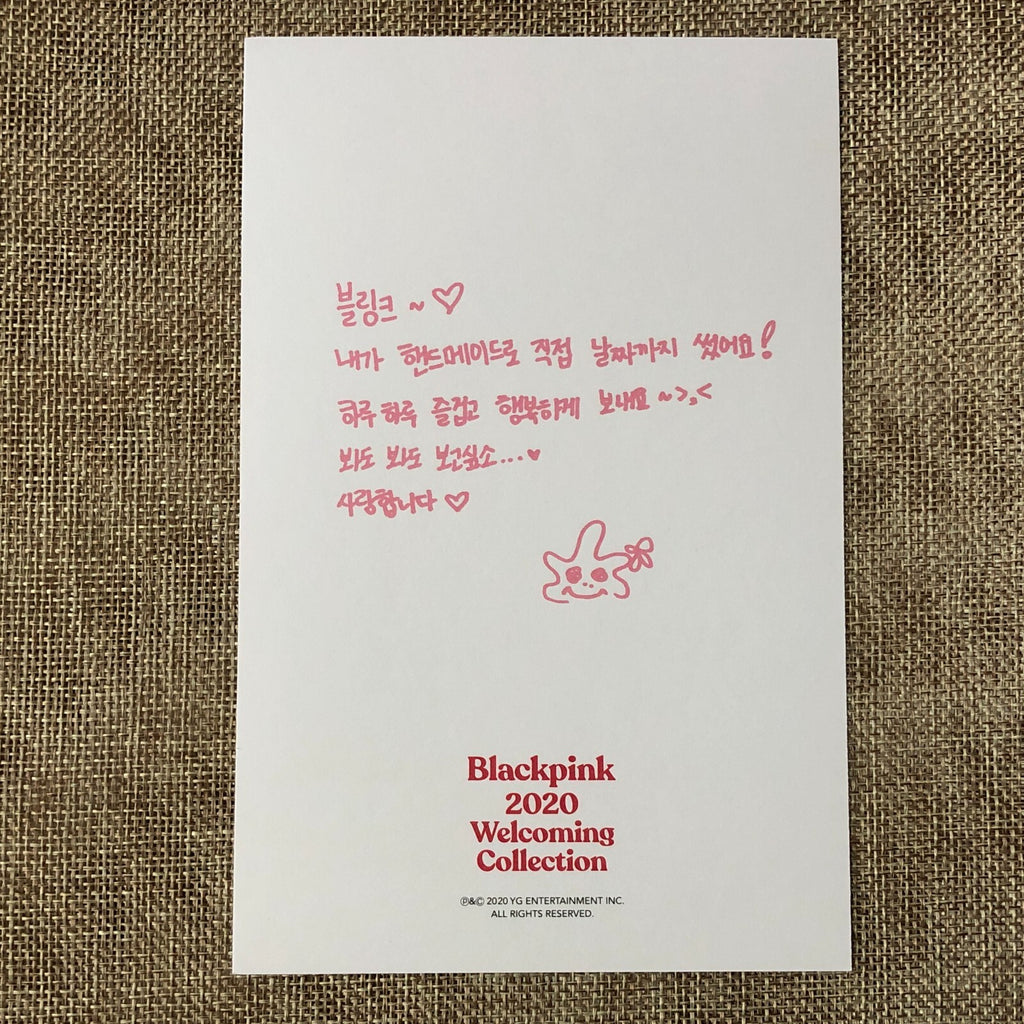 블링크 ~ ♡
내가 핸드메이드로 직접 날짜까지 썼어요!
하루하루 즐겁고 행복하게 보내요 ~>,<
봐도 봐도 보고싶소...♥
사랑합니다 ♡
Blackpink
2020
Welcoming
Collection
℗&© 2020 YG ENTERTAINMENT INC.
ALL RIGHTS RESERVED.